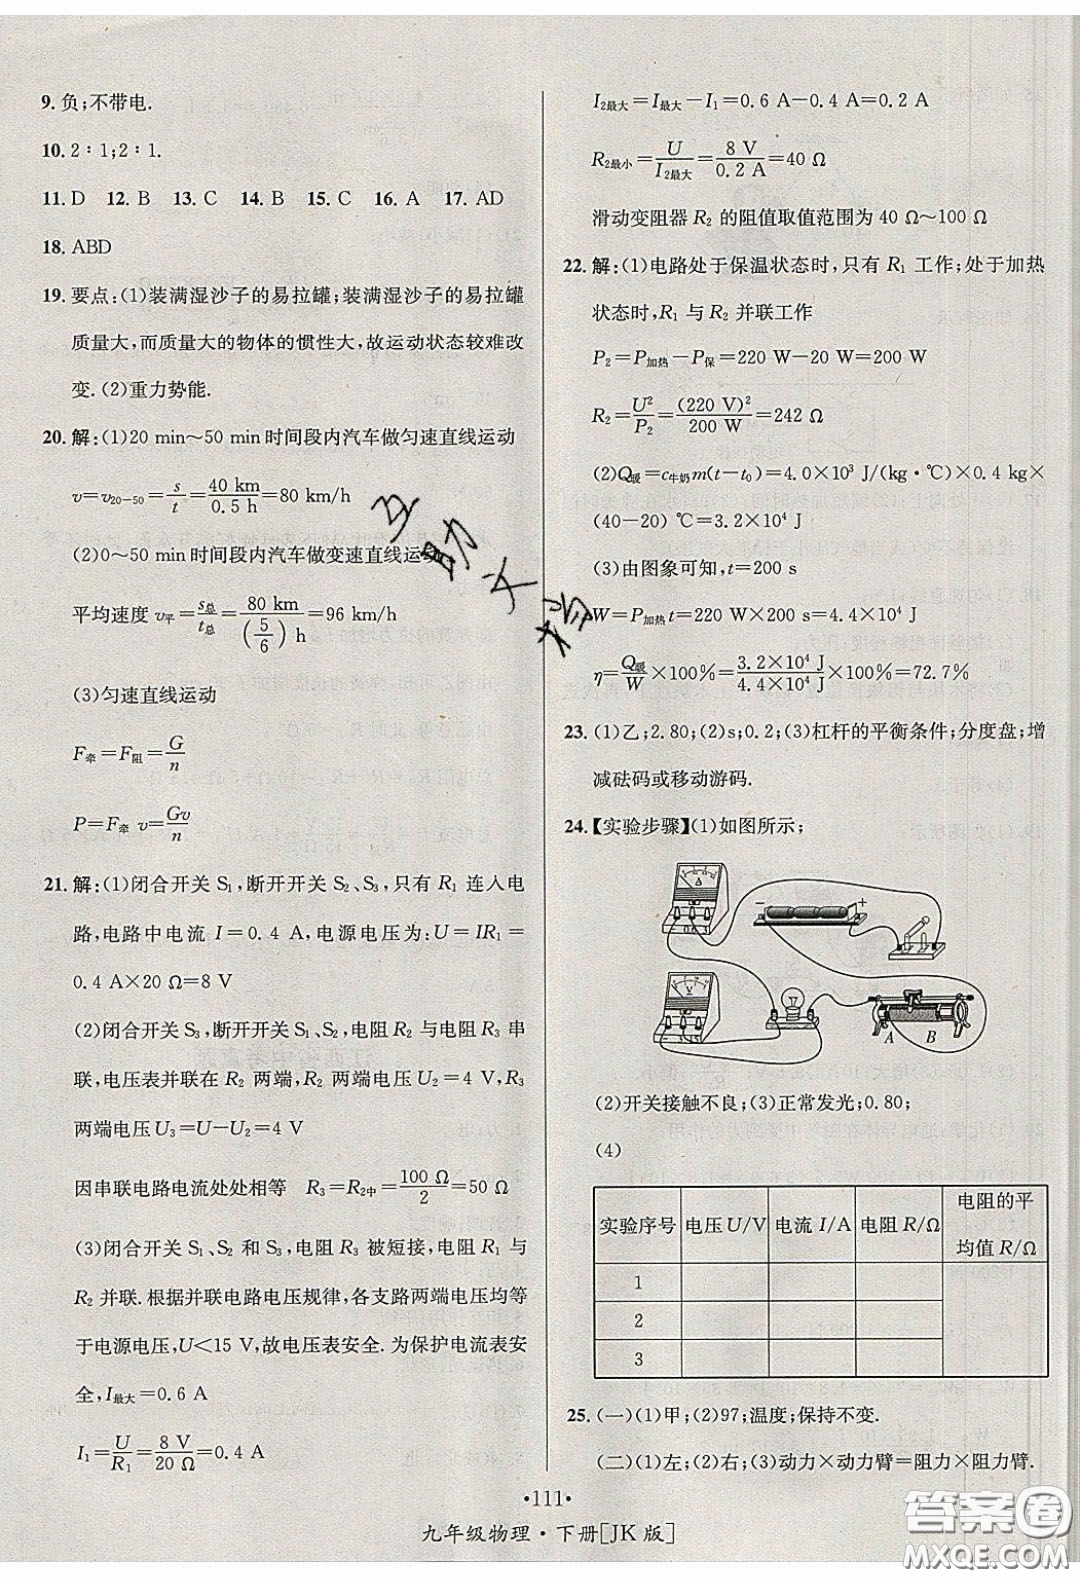 9. 负;不带电.
10. 2∶1;2∶1.
11. D 12. B 13. C 14. B 15. C 16. A 17. AD
18. ABD
19. 要点:(1)装满湿沙子的易拉罐;装满湿沙子的易拉罐
质量大,而质量大的物体的惯性大,故运动状态较难改
变.(2)重力势能.
20. 解:(1)20 min～50 min时间段内汽车做匀速直线运动
v=v20-50=s/t=40 km/0.5 h=80 km/h
(2)0～50 min时间段内汽车做变速直线运动
平均速度 v平=s总/t总=80 km/(5/6) h=96 km/h
(3)匀速直线运动
F牵=F阻=G/n
P=F牵 v=Gv/n
21. 解:(1)闭合开关 S1,断开开关 S2、S3,只有 R1 连入电
路,电路中电流 I=0.4 A,电源电压为:U=IR1=
0.4 A×20 Ω=8 V
(2)闭合开关 S3,断开开关 S1、S2,电阻 R2 与电阻 R3 串
联,电压表并联在 R2 两端,R2 两端电压 U2=4 V,R3
两端电压 U3=U-U2=4 V
因串联电路电流处处相等 R3=R2中=100 Ω/2=50 Ω
(3)闭合开关 S1、S2 和 S3,电阻 R3 被短接,电阻 R1 与
R2 并联.根据并联电路电压规律,各支路两端电压均等
于电源电压,U<15 V,故电压表安全.为保护电流表安
全,I最大=0.6 A
I1=U/R1=8 V/20 Ω=0.4 A
I2最大=I最大-I1=0.6 A-0.4 A=0.2 A
R2最小=U/I2最大=8 V/0.2 A=40 Ω
滑动变阻器 R2 的阻值取值范围为 40 Ω～100 Ω
22. 解:(1)电路处于保温状态时,只有 R1 工作;处于加热
状态时,R1 与 R2 并联工作
P2=P加热-P保=220 W-20 W=200 W
R2=U²/P2=(220 V)²/200 W=242 Ω
(2)Q吸=c牛奶m(t-t0)=4.0×10³ J/(kg·℃)×0.4 kg×
(40-20) ℃=3.2×10⁴ J
(3)由图象可知,t=200 s
W=P加热t=220 W×200 s=4.4×10⁴ J
η=Q吸/W×100%=3.2×10⁴ J/4.4×10⁴ J×100%=72.7%
23. (1)乙;2.80;(2)s;0.2;(3)杠杆的平衡条件;分度盘;增
减砝码或移动游码.
24.【实验步骤】(1)如图所示;
A
- +
V
A B
(2)开关接触不良;(3)正常发光;0.80;
(4)
实验序号 电压U/V 电流 I/A 电阻 R/Ω 电阻的平均值 R/Ω
1
2
3
25. (一)(1)甲;(2)97;温度;保持不变.
(二)(1)左;(2)右;(3)动力×动力臂=阻力×阻力臂.
·111·
九年级物理·下册[JK版]
互助文档
答案圈
MXQE.COM